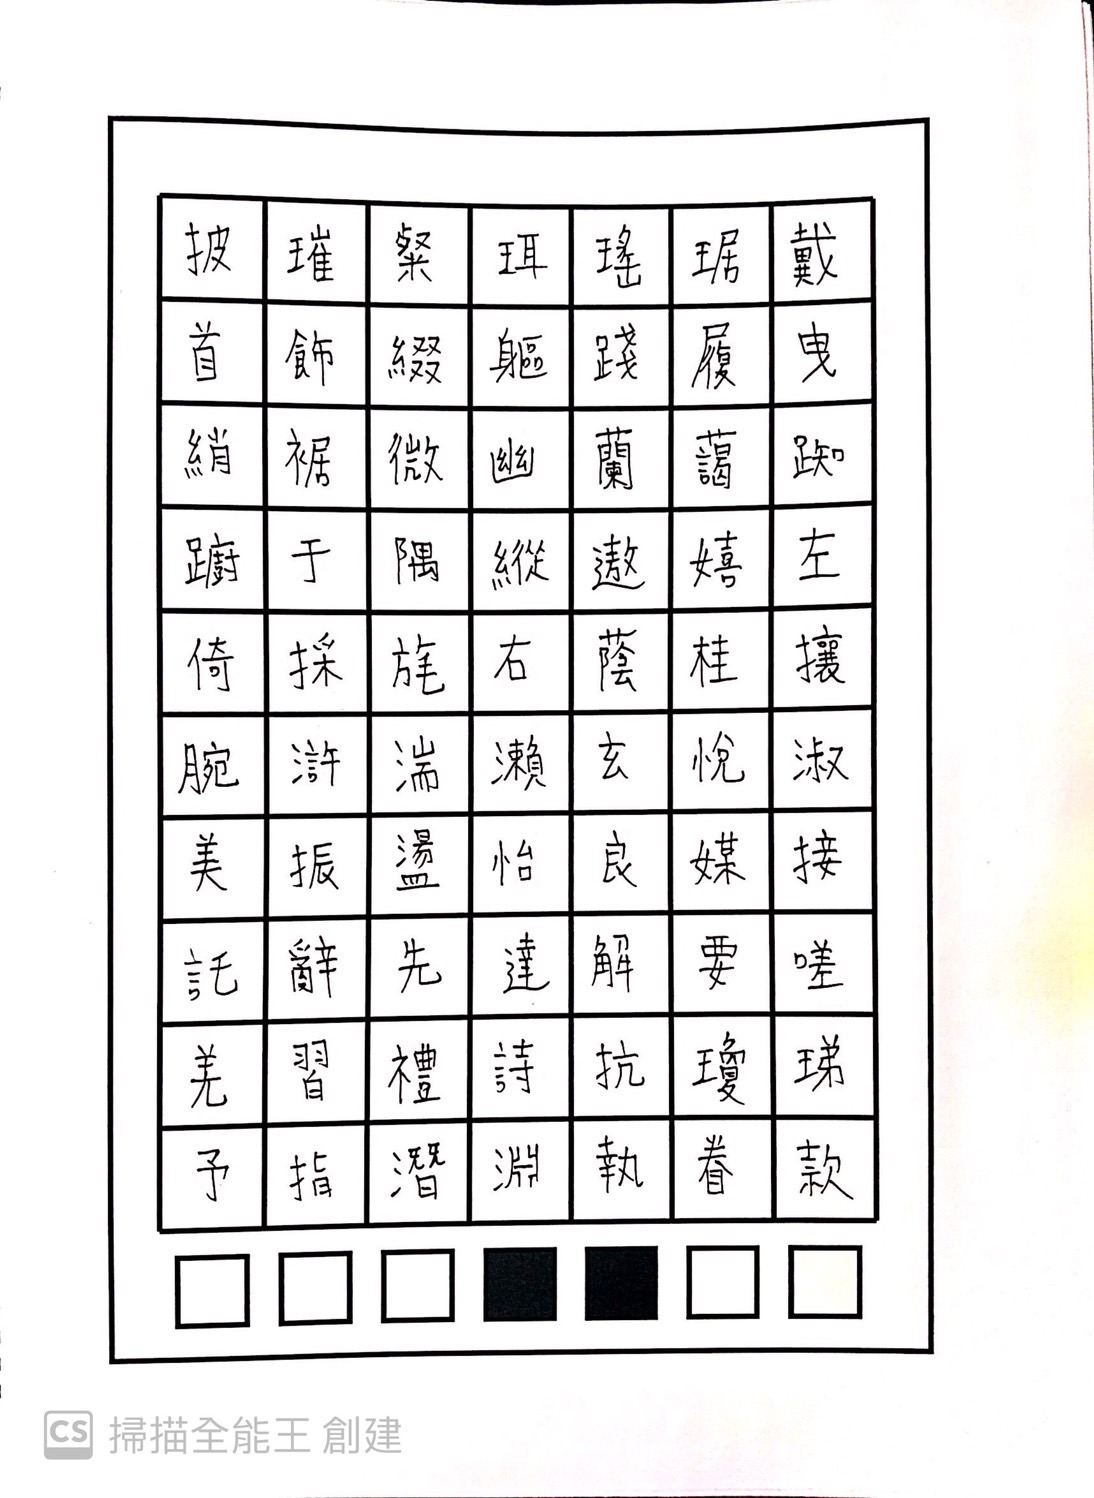 披璀粲珥瑤琚戴
首飾綴軀踐履曳
綃裾微幽蘭藹踟
躕于隅縱遨嬉左
倚採旄右蔭桂攘
腕滸湍瀨玄悅淑
美振盪怡良媒接
託辭先達解要嗟
羌習禮詩抗瓊珶
予指潛淵執眷款
CS 掃描全能王 創建